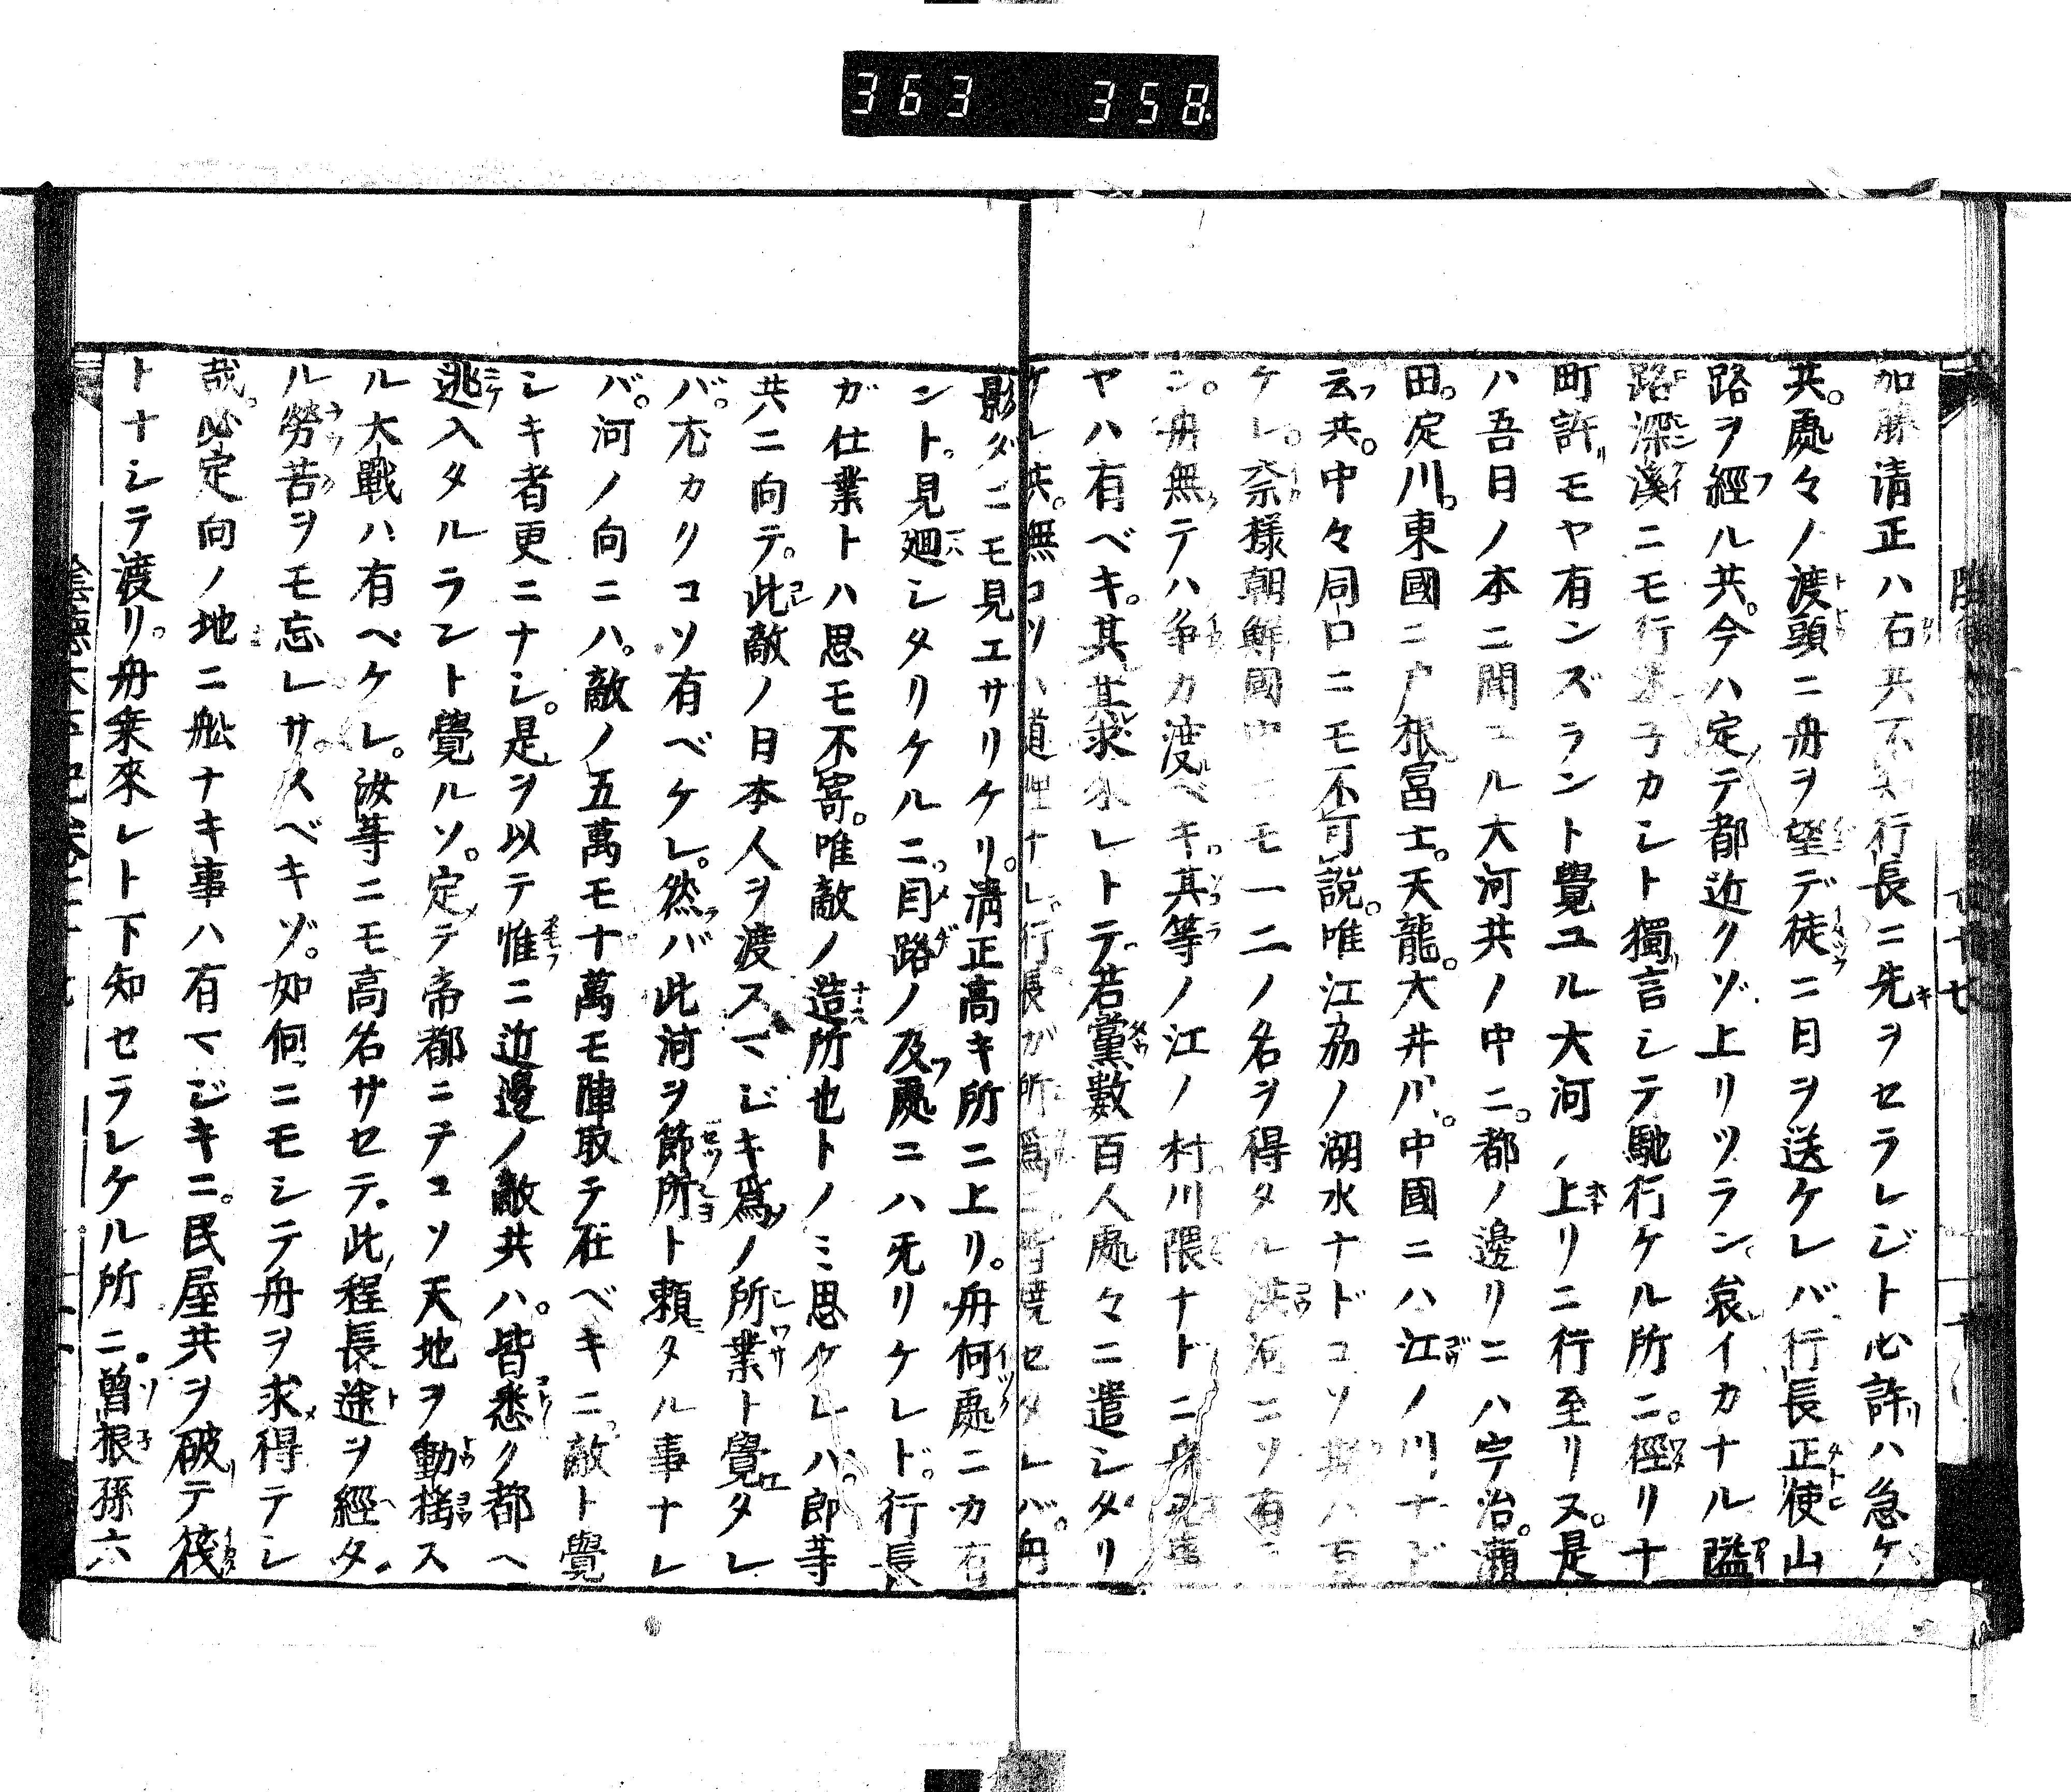 363 358
加藤清正ハ右共不知行長ニ先ヲセラレジト心許ハ急ケ
共。處々ノ渡頭ニ舟ヲ望デ徒ニ日ヲ送ケレバ行長正使山
路ヲ經ル共。今ハ定テ都近クゾ上リツラン。哀イカナル隘
路深溪ニモ行逢子カシト獨言シテ馳行ケル所ニ。徑リ十
町許モヤ有ンズラント覺ユル大河ノ上リニ行至リヌ。是
ハ吾日ノ本ニ聞ユル大河共ノ中ニ。都ノ邊リニハ宇治。瀬
田。淀川。東國ニ戸根富士。天龍。大井川。中國ニハ江ノ川ナド
云共。中々同口ニモ不可說。唯江刕ノ湖水ナドコソ斯ハ有
ケレ。奈樣朝鮮國中ニモ一二ノ名ヲ得タル洪河ニソ有ラ
ン。舟無テハ争カ渡ベキ。其等ノ江ノ村川隈ナドニ舟
ヤハ有ベキ。其其求來レトテ。若黨數百人處々ニ遣シタリ
ケレ共。無コソハ道理ナレ。行長ガ所爲ニ皆燒セタレバ。舟
影ダニモ見エサリケリ。淸正高キ所ニ上リ。舟何處ニカ有
ント。見廻シタリケルニ。目路ノ及處ニハ旡リケレド。行長
ガ仕業トハ思モ不寄。唯敵ノ造所也トノミ思ケレハ。郎等
共ニ向テ。此敵ノ日本人ヲ渡スマジキ爲ノ所業ト覺タレ
バ。尤カリコソ有ベケレ。然バ此河ヲ節所ト賴タル事ナレ
バ。河ノ向ニハ。敵ノ五萬モ十萬モ陣取テ在ベキニ。敵ト覺
シキ者更ニナシ。是ヲ以テ惟ニ近邊ノ敵共ハ。皆悉ク都ヘ
逃入タルラント覺ルソ。定テ帝都ニテコソ天地ヲ動搖ス
ル大戰ハ有ベケレ。汝等ニモ高名サセテ。此程長途ヲ經タ
ル勞苦ヲモ忘レサスベキゾ。如何ニモシテ舟ヲ求得テシ
哉。必定向ノ地ニ舩ナキ事ハ有マジキニ。民屋共ヲ破テ筏
トナシテ渡リ。舟乗來レト下知セラレケル所ニ。曽根孫六